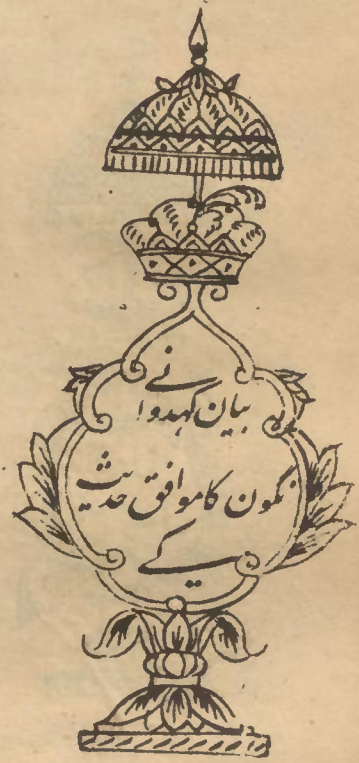 بیان کہدوانے
نگون کا موافق حدیث
کے